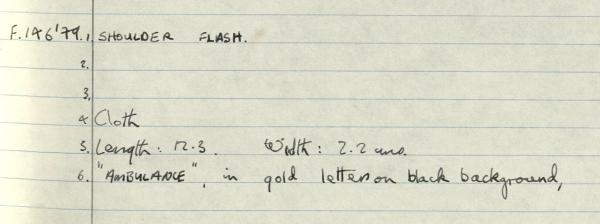 F.146'79.1. SHOULDER FLASH.
2.
3.
4 Cloth
5. Length: 12.3. Width: 2.2 cms.
6. "AMBULANCE", in gold letters on black background,